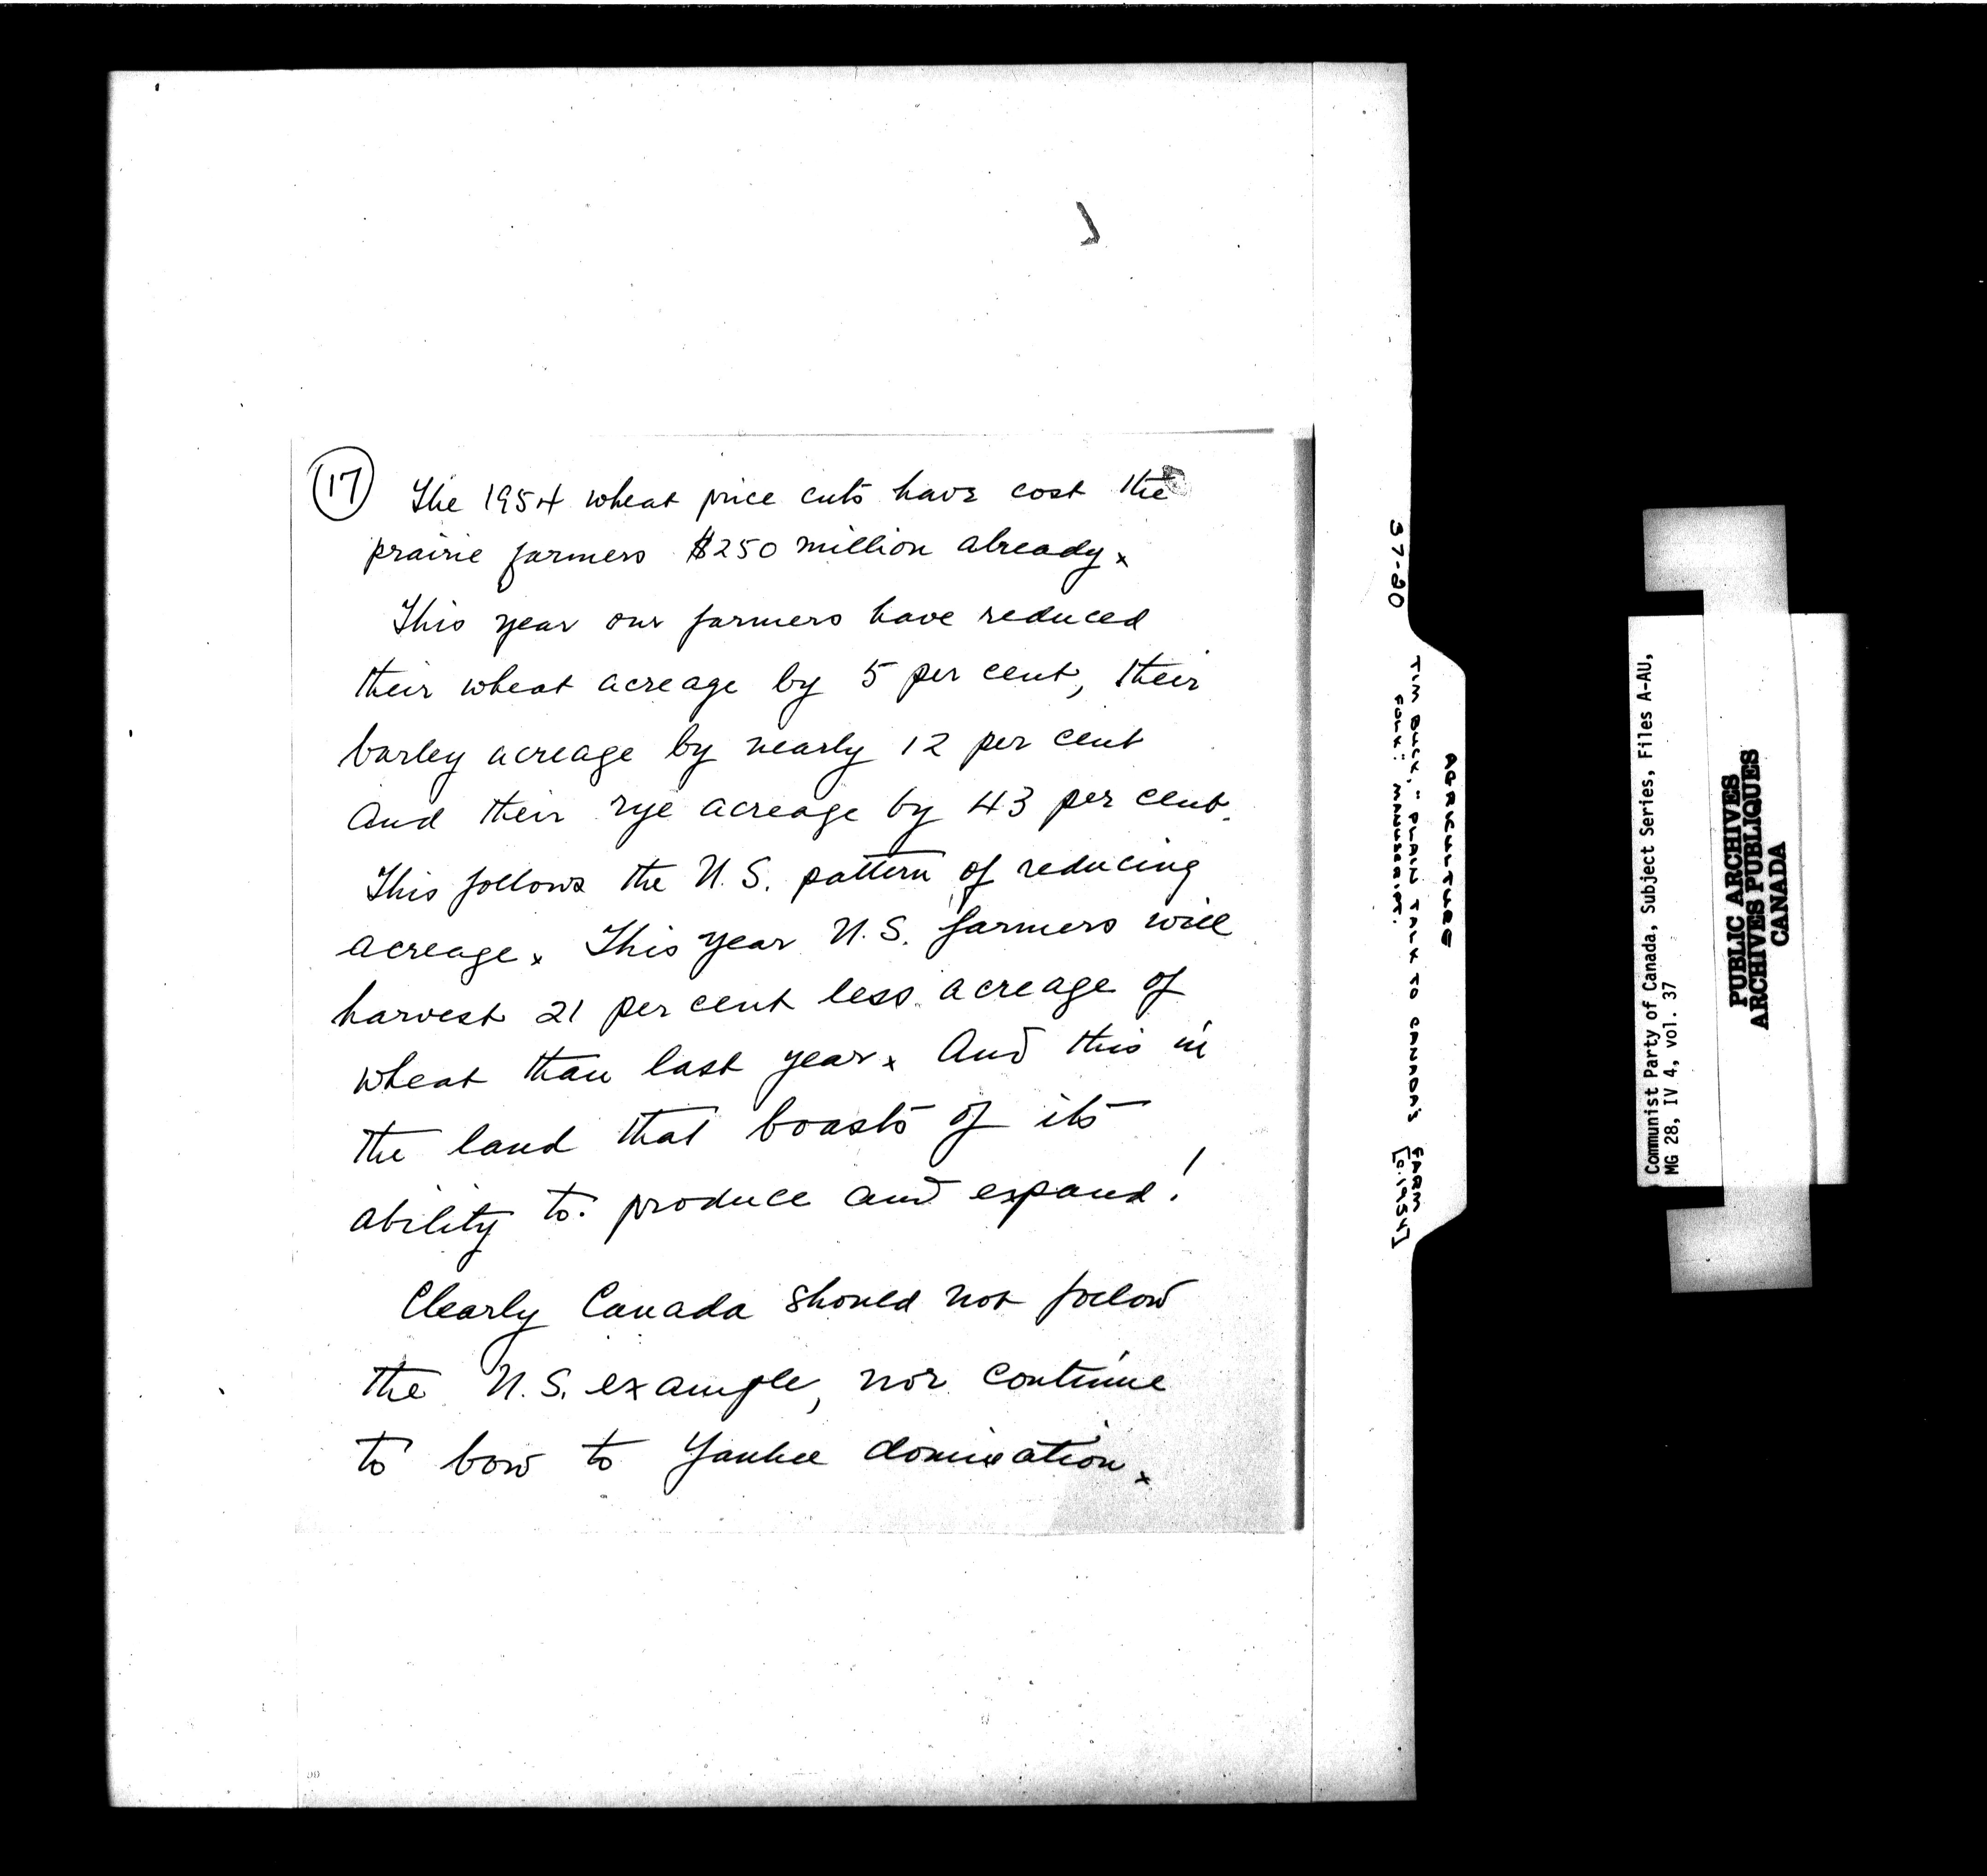 (17) The 1954 wheat price cuts have cost the
prairie farmers $250 million already x
This year our farmers have reduced
their wheat acreage by 5 per cent, their
barley acreage by nearly 12 per cent
And their rye acreage by 43 per cent.
This follows the U.S. pattern of reducing
acreage x This year U.S. farmers will
harvest 21 per cent less acreage of
wheat than last year x And this in
the land that boasts of its
ability to produce and expand!
Clearly Canada should not follow
the U.S. example, nor continue
to bow to Yankee domination x
37-20
AGRICULTURE
TIM BUCK, "PLAIN TALK TO CANADA'S FARM
FOLK: MANUSCRIPT. [c.1954]
Communist Party of Canada, Subject Series, Files A-AU,
MG 28, IV 4, vol. 37
PUBLIC ARCHIVES
ARCHIVES PUBLIQUES
CANADA